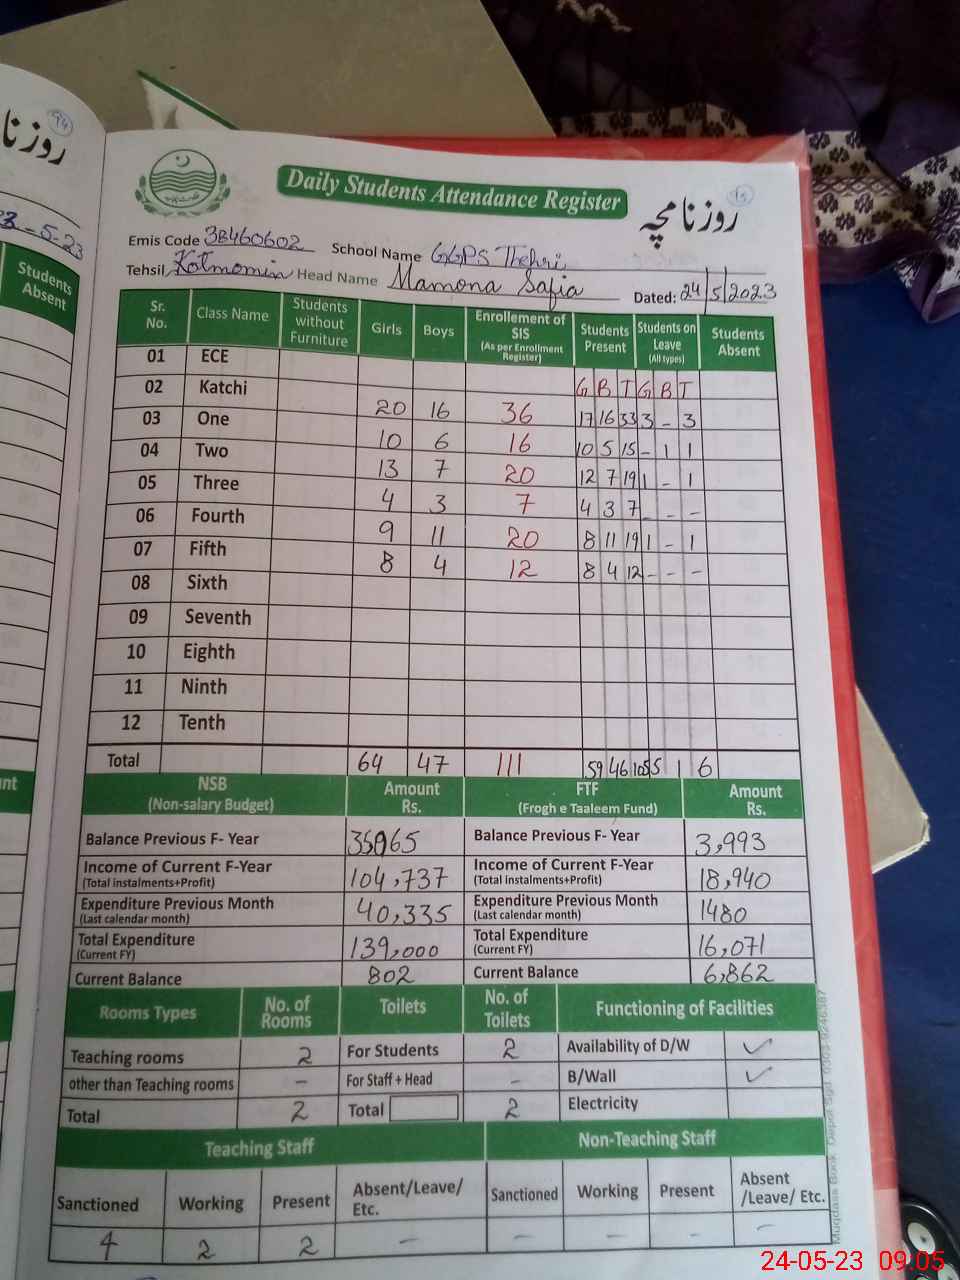 94
روزنا
3-5-23
Students Absent
95
Daily Students Attendance Register
روزنامچہ
Emis Code 38460602 School Name GGPS Thehri
Tehsil Kotmomin Head Name Mamona Safia Dated: 24/5/2023
Sr. No. Class Name Students without Furniture Girls Boys Enrollement of SIS (As per Enrollment Register) Students Present Students on Leave (All types) Students Absent
01 ECE
02 Katchi G B T G B T
03 One 20 16 36 17 16 33 3 - 3
04 Two 10 6 16 10 5 15 - 1 1
05 Three 13 7 20 12 7 19 1 - 1
06 Fourth 4 3 7 4 3 7 - - -
07 Fifth 9 11 20 8 11 19 1 - 1
08 Sixth 8 4 12 8 4 12 - - -
09 Seventh
10 Eighth
11 Ninth
12 Tenth
Total 64 47 111 59 46 105 5 1 6
NSB (Non-salary Budget) Amount Rs. FTF (Frogh e Taaleem Fund) Amount Rs.
Balance Previous F- Year Balance Previous F- Year 3,993
Income of Current F-Year (Total instalments+Profit) 104,737 Income of Current F-Year (Total instalments+Profit) 18,940
Expenditure Previous Month (Last calendar month) 40,335 Expenditure Previous Month (Last calendar month) 1480
Total Expenditure (Current FY) 139,000 Total Expenditure (Current FY) 16,071
Current Balance 802 Current Balance 6,862
Rooms Types No. of Rooms Toilets No. of Toilets Functioning of Facilities
Teaching rooms 2 For Students 2 Availability of D/W ✓
other than Teaching rooms - For Staff + Head - B/Wall ✓
Total 2 Total 2 Electricity
Teaching Staff Non-Teaching Staff
Sanctioned Working Present Absent/Leave/ Etc. Sanctioned Working Present Absent /Leave/ Etc.
4 2 2 - - - - -
Muqdass Book Depot Sgd
24-05-23 09:05